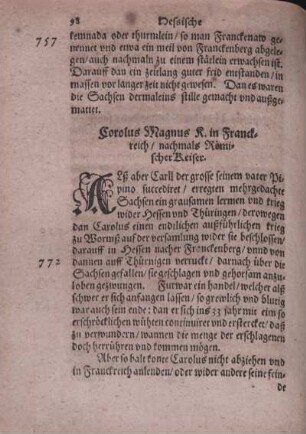 98 Hessische
757
kemnada oder thurmlein/so man Franckenaw ge-
nennet vnd etwa ein meil von Franckenberg abgele-
gen/auch nachmaln zu einem stätlein erwachsen ist.
Darauff dan ein zeitlang guter frid enstanden/in
massen vor langer zeit nicht gewesen. Dan es waren
die Sachsen dermaleins stille gemacht vnd außge-
mattet.
Carolus Magnus K. in Franck-
reich/nachmals Römi-
scher Keiser.
ALß aber Carll der grosse seinem vater Pi-
pino succedirt/erregten mehrgedachte
Sachsen ein grausamen lermen vnd krieg
wider Hessen vnd Thüringen/derowegen
dan Carolus einen endtlichen außführlichen krieg
zu Wormß auf der versamlung wider sie beschlossen/
darauff in Hessen nacher Franckenberg/vnnd von
772
dannen auff Thürnigen verruckt/darnach über die
Sachsen gefallen/sie gschlagen vnd gehorsam anzu-
loben gezwungen. Furwar ein handel/welcher alß
schwer er sich anfangen lassen/so grewlich vnd blutig
war auch sein ende: dan er sich ins 33 jahr mit eim so
erschröcklichen wühten continuiret vnd erstercket/daß
zu verwundern/wannen die menge der erschlagenen
doch herrühren vnd kommen mögen.
Aber so balt konte Carolus nicht abziehen vnd
in Franckreich anlenden/oder wider andere seine fein-
de